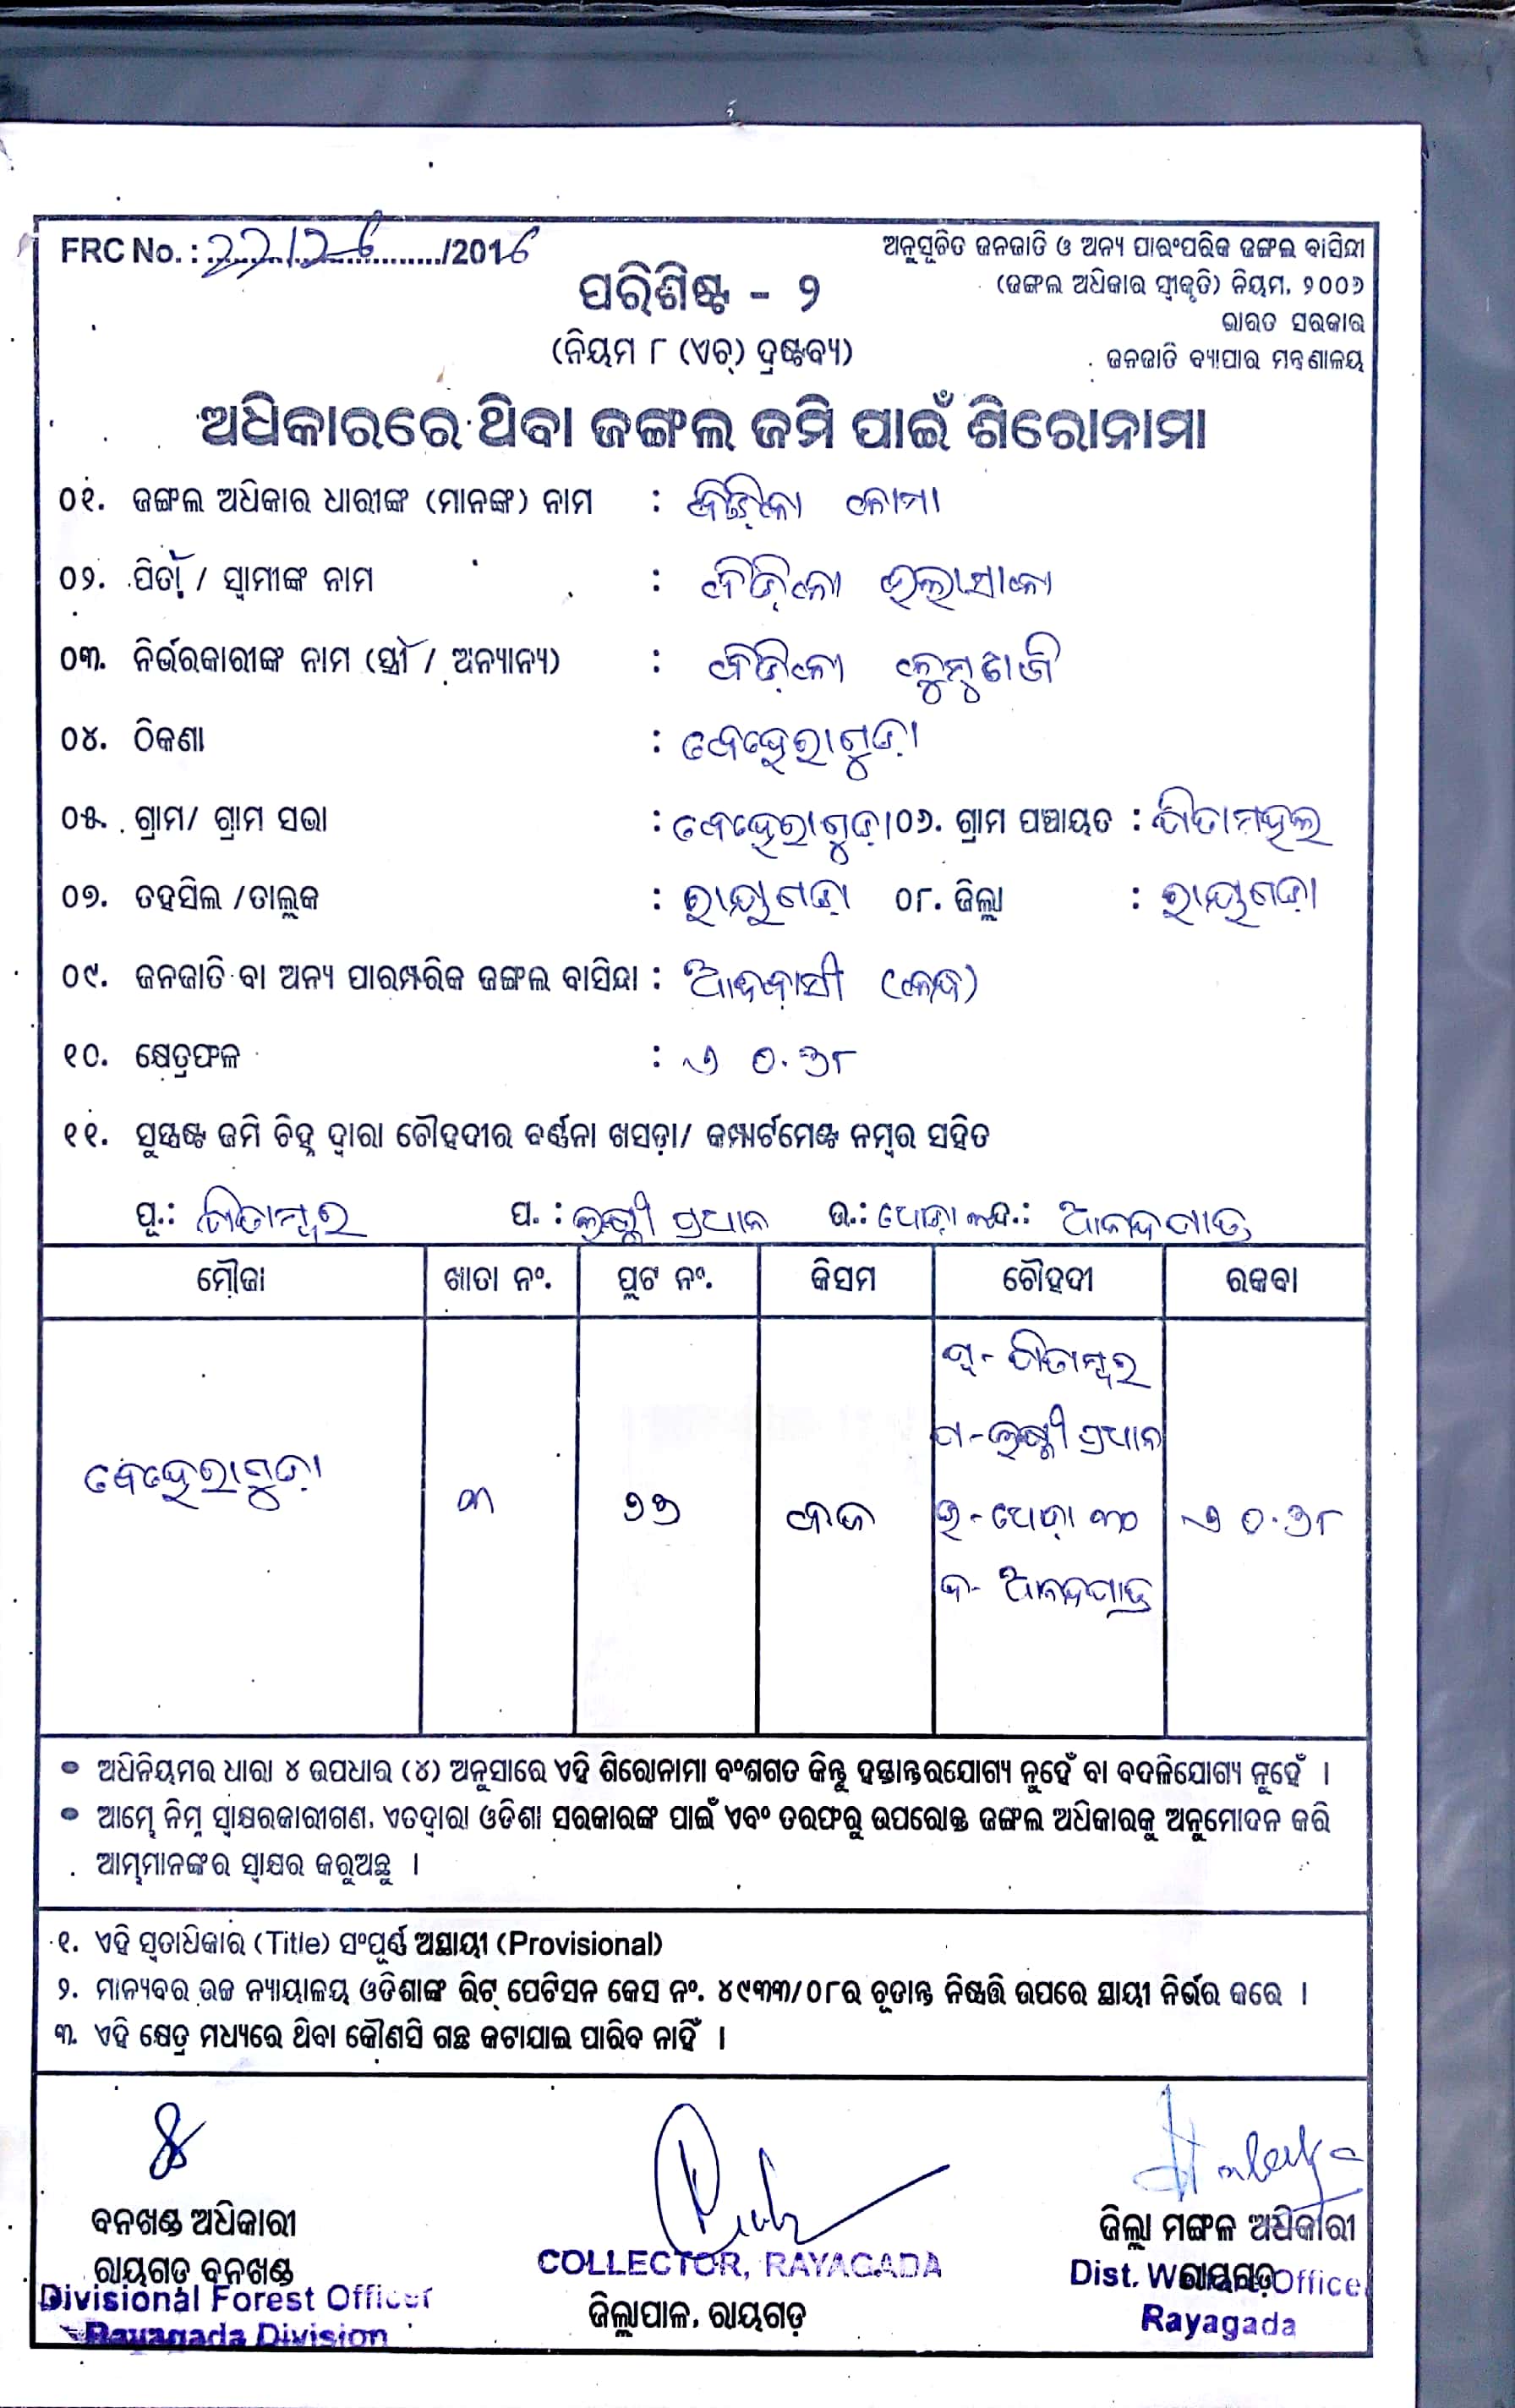 FRC No. : 22/26 /2016
ଅନୁସୂଚିତ ଜନଜାତି ଓ ଅନ୍ୟ ପାରଂପରିକ ଜଙ୍ଗଲ ବାସିନ୍ଦା
(ଜଙ୍ଗଲ ଅଧିକାର ସ୍ୱୀକୃତି) ନିୟମ. ୨୦୦୬
ଭାରତ ସରକାର
ଜନଜାତି ବ୍ୟାପାର ମନ୍ତ୍ରଣାଳୟ
ପରିଶିଷ୍ଟ - ୨
(ନିୟମ ୮ (ଏଚ୍) ଦ୍ରଷ୍ଟବ୍ୟ)
ଅଧିକାରରେ ଥିବା ଜଙ୍ଗଲ ଜମି ପାଇଁ ଶିରୋନାମା
୦୧. ଜଙ୍ଗଲ ଅଧିକାର ଧାରୀଙ୍କ (ମାନଙ୍କ) ନାମ :
୦୨. ପିତା / ସ୍ୱାମୀଙ୍କ ନାମ :
୦୩. ନିର୍ଭରକାରୀଙ୍କ ନାମ (ସ୍ତ୍ରୀ / ଅନ୍ୟାନ୍ୟ) :
୦୪. ଠିକଣା : ବେହେରାଗୁଡ଼ା
୦୫. ଗ୍ରାମ/ ଗ୍ରାମ ସଭା : ବେହେରାଗୁଡ଼ା ୦୬. ଗ୍ରାମ ପଞ୍ଚାୟତ : ପିତାମହଲ
୦୭. ତହସିଲ /ତାଲୁକ : ରାୟଗଡ଼ା ୦୮. ଜିଲ୍ଲା : ରାୟଗଡ଼ା
୦୯. ଜନଜାତି ବା ଅନ୍ୟ ପାରମ୍ପରିକ ଜଙ୍ଗଲ ବାସିନ୍ଦା : ଆଦିବାସୀ
୧୦. କ୍ଷେତ୍ରଫଳ : ଏ ୦.୩୮
୧୧. ସୁସ୍ପଷ୍ଟ ଜମି ଚିହ୍ନ ଦ୍ୱାରା ଚୌହଦୀର ବର୍ଣ୍ଣନା ଖସଡ଼ା/ କମ୍ପାର୍ଟମେଣ୍ଟ ନମ୍ବର ସହିତ
ପୂ.: ପିତାମ୍ବର ପ. : ଲକ୍ଷ୍ମୀ ପ୍ରଧାନ ଉ.: ଦ.:
ମୌଜା ଖାତା ନଂ. ପ୍ଲଟ ନଂ. କିସମ ଚୌହଦୀ ରକବା
ପୂ- ପିତାମ୍ବର
ପ-ଲକ୍ଷ୍ମୀ ପ୍ରଧାନ
ବେହେରାଗୁଡ଼ା ୩ ୨୭ ଏ ୦.୩୮
ଅଧିନିୟମର ଧାରା ୪ ଉପଧାର (୪) ଅନୁସାରେ ଏହି ଶିରୋନାମା ବଂଶଗତ କିନ୍ତୁ ହସ୍ତାନ୍ତରଯୋଗ୍ୟ ନୁହେଁ ବା ବଦଳିଯୋଗ୍ୟ ନୁହେଁ ।
ଆମ୍ଭେ ନିମ୍ନ ସ୍ୱାକ୍ଷରକାରୀଗଣ, ଏତଦ୍ୱାରା ଓଡିଶା ସରକାରଙ୍କ ପାଇଁ ଏବଂ ତରଫରୁ ଉପରୋକ୍ତ ଜଙ୍ଗଲ ଅଧିକାରକୁ ଅନୁମୋଦନ କରି
ଆମ୍ଭମାନଙ୍କର ସ୍ୱାକ୍ଷର କରୁଅଛୁ ।
୧. ଏହି ସ୍ୱତାଧିକାର (Title) ସଂପୂର୍ଣ୍ଣ ଅସ୍ଥାୟୀ (Provisional)
୨. ମାନ୍ୟବର ଉଚ୍ଚ ନ୍ୟାୟାଳୟ ଓଡିଶାଙ୍କ ରିଟ୍ ପେଟିସନ କେସ ନଂ. ୪୯୩୩/୦୮ର ଚୂଡାନ୍ତ ନିଷ୍ପତ୍ତି ଉପରେ ସ୍ଥାୟୀ ନିର୍ଭର କରେ ।
୩. ଏହି କ୍ଷେତ୍ର ମଧ୍ୟରେ ଥିବା କୌଣସି ଗଛ କଟାଯାଇ ପାରିବ ନାହିଁ ।
ବନଖଣ୍ଡ ଅଧିକାରୀ
ରାୟଗଡ଼ ବନଖଣ୍ଡ
Divisional Forest Officer
Rayagada Division
COLLECTOR, RAYAGADA
ଜିଲ୍ଲାପାଳ, ରାୟଗଡ଼
ଜିଲ୍ଲା ମଙ୍ଗଳ ଅଧିକାରୀ
ରାୟଗଡ଼
Dist. Welfare Officer
Rayagada